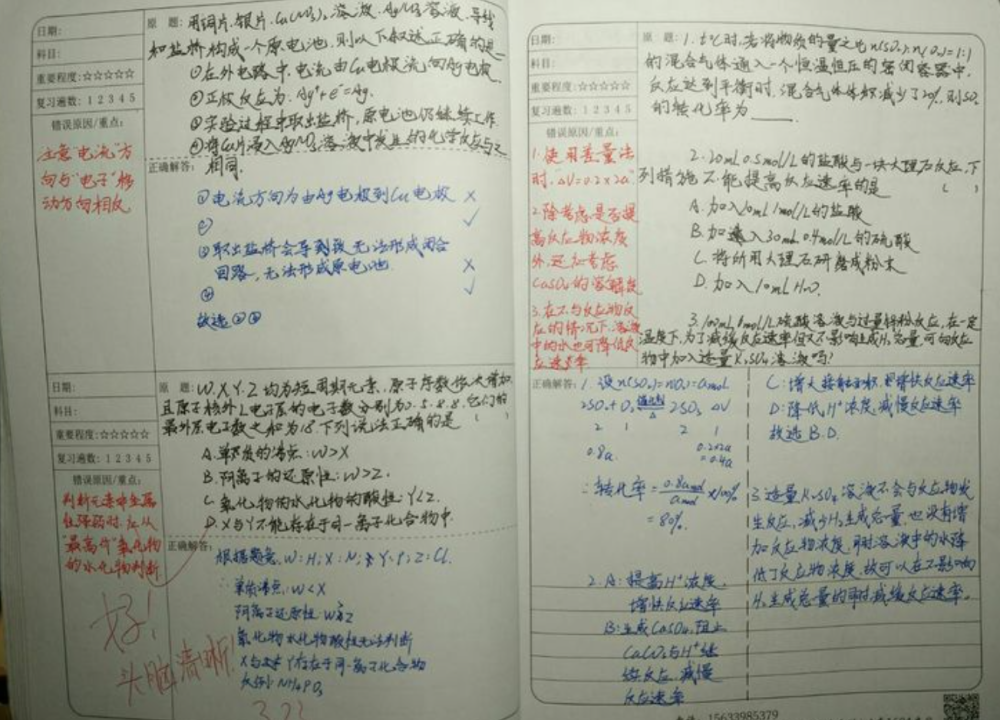 日期:
科目:
重要程度:☆☆☆☆☆
复习遍数: 1 2 3 4 5
错误原因/重点:
注意"电流"方
向与"电子"移
动方向相反
原 题: 用铜片、银片、Cu(NO₃)₂溶液、AgNO₃溶液、导线
和盐桥构成一个原电池,则以下叙述正确的是
①在外电路中,电流由Cu电极流向Ag电极
②正极反应为:Ag⁺+e⁻=Ag
③实验过程中取出盐桥,原电池仍继续工作
④将Cu片浸入AgNO₃溶液中发生的化学反应与之
相同.
正确解答:
①电流方向为由Ag电极到Cu电极 ×
② ✓
③取出盐桥会导致无法形成闭合
回路,无法形成原电池 ×
④ ✓
故选②④
日期:
科目:
重要程度:☆☆☆☆☆
复习遍数: 1 2 3 4 5
错误原因/重点:
判断元素非金属
性强弱时,应从
"最高价"氧化物
的水化物判断
原 题: W、X、Y、Z均为短周期元素,原子序数依次增加,
且原子核外L电子层的电子数分别为0、5、8、8,它们的
最外层电子数之和为18.下列说法正确的是( )
A.单质的沸点:W>X
B.阴离子的还原性:W>Z.
C.氧化物的水化物的酸性:Y<Z.
D.X与Y不能存在于同一离子化合物中.
正确解答:
根据题意,W:H;X:N;Y:P;Z:Cl.
∴单质沸点:W<X
阴离子还原性:W>Z
氧化物水化物酸性无法判断
X与Y存在于同一离子化合物
好!
头脑清晰!
日期:
科目:
重要程度:☆☆☆☆☆
复习遍数: 1 2 3 4 5
错误原因/重点:
1.使用差量法
时,ΔV=0.2×2a
2.除考虑是否提
高反应物浓度
外,还应考虑
CaSO₄的溶解度
3.在不与反应物反
应的情况下,溶液
中的水也可降低反
应速率
原 题: 1.t℃时,若将物质的量之比n(SO₂):n(O₂)=1:1
的混合气体通入一个恒温恒压的密闭容器中,
反应达到平衡时,混合气体体积减少了20%,则SO₂
的转化率为____.
2.20mL 0.5mol/L的盐酸与一块大理石反应,下
列措施不能提高反应速率的是 ( )
A.加入10mL 1mol/L的盐酸
B.加入30mL 0.4mol/L的硫酸
C.将所用大理石研磨成粉末
D.加入10mL H₂O.
3.100mL 6mol/L硫酸溶液与过量锌粉反应,在一定
温度下,为了减缓反应速率但又不影响生成H₂总量,可向反应
物中加入适量K₂SO₄溶液吗?
正确解答:
1.设n(SO₂)=n(O₂)=a mol
2SO₂+O₂ 催化剂 Δ 2SO₃ ΔV
2 1 2 1
0.8a 0.2×2a
=0.4a
∴转化率=0.8a mol/a mol×100%
=80%.
2.A:提高H⁺浓度,
增快反应速率
B:生成CaSO₄,阻止
CaCO₃与H⁺继
续反应,减慢
反应速率
C:增大接触面积,增快反应速率
D:降低H⁺浓度,减慢反应速率
故选B.D.
3.适量K₂SO₄溶液不会与反应物发
生反应,减少H₂生成总量,也没有增
加反应物浓度,同时溶液中的水降
低了反应物浓度,故可以在不影响
H₂生成总量的同时,减缓反应速率.
15633985379